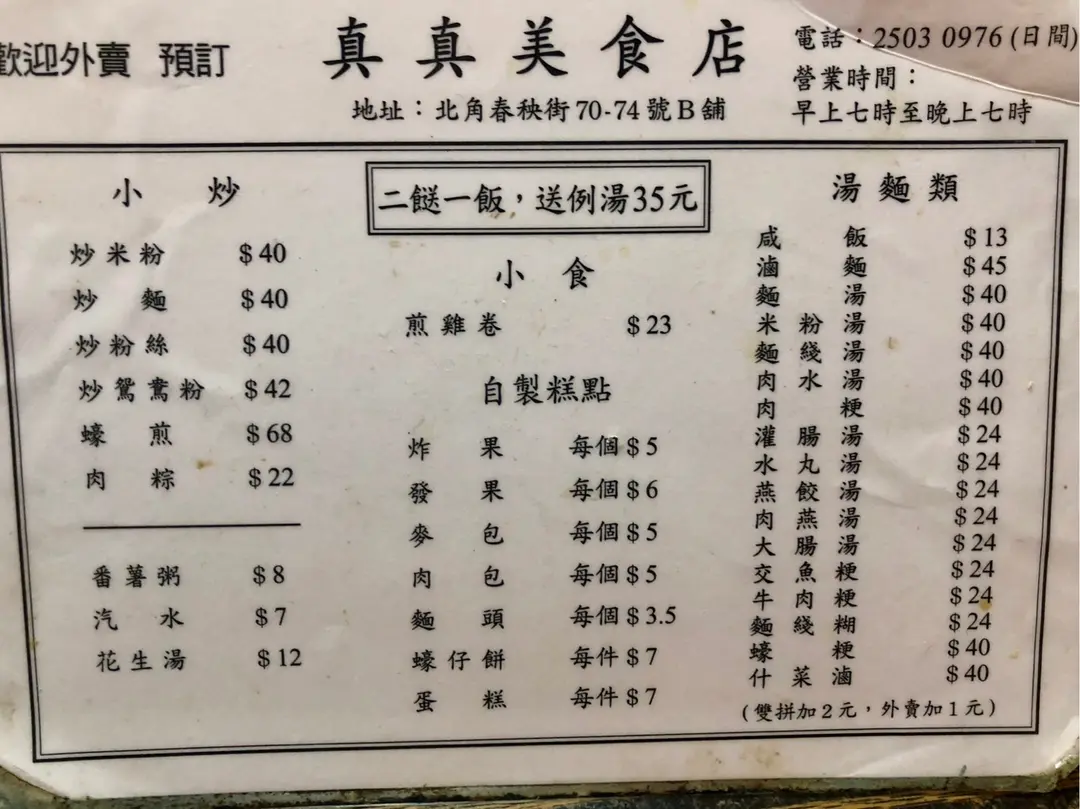 歡迎外賣 預訂
真真美食店
地址：北角春秧街70-74號B舖
電話：2503 0976 (日間)
營業時間：
早上七時至晚上七時
小炒
炒米粉 $40
炒麵 $40
炒粉絲 $40
炒鴛鴦粉 $42
蠔煎 $68
肉粽 $22
番薯粥 $8
汽水 $7
花生湯 $12
二餸一飯，送例湯35元
小食
煎雞卷 $23
自製糕點
炸果 每個 $5
發果 每個 $6
麥包 每個 $5
肉包 每個 $5
麵頭 每個 $3.5
蠔仔餅 每件 $7
蛋糕 每件 $7
湯麵類
咸飯 $13
滷麵 $45
麵湯 $40
米粉湯 $40
麵綫湯 $40
肉水湯 $40
肉粳 $40
灌腸湯 $24
水丸湯 $24
燕餃湯 $24
肉燕湯 $24
大腸湯 $24
交魚粳 $24
牛肉粳 $24
麵綫糊 $24
蠔粳 $40
什菜滷 $40
(雙拼加2元，外賣加1元)